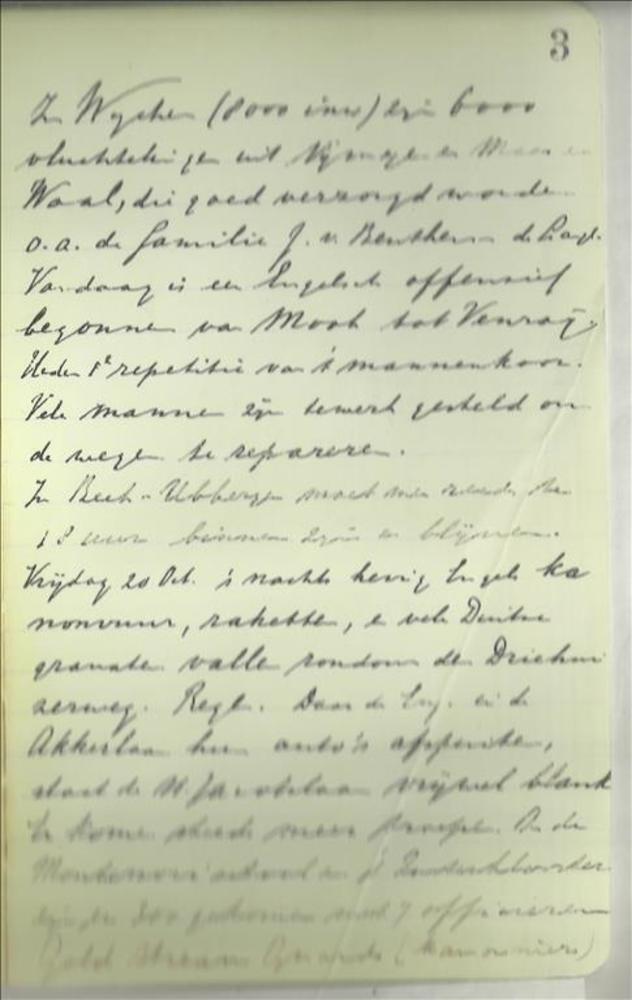 3
In Wychen (8000 inw) zijn 6000
vluchtelingen uit Nijmegen en Maas en
Waal, die goed verzorgd worden
o.a. de familie J. v. Benthem
Vandaag is een Engelsch offensief
begonnen van Mook tot Venray.
Heden 1e repetitie van 't mannenkoor.
Vele mannen zijn tewerk gesteld om
de wegen te repareren.
In Beek-Ubbergen moet men
18 uur binnen zijn en blijven.
Vrijdag 20 Oct. 's nachts hevig Engels ka
nonvuur, raketten, en vele Duitse
granaten vallen rondom den Driehui
zerweg. Regen. Daar de Eng. in de
Akkerlaan hun auto's
staat de St. Jacobslaan vrijwel blank
Er komen steeds meer troepen. In de
Montessorischool en
zijn er 300 gekomen met 7 officieren
Gold Stream Guards (kanonniers)